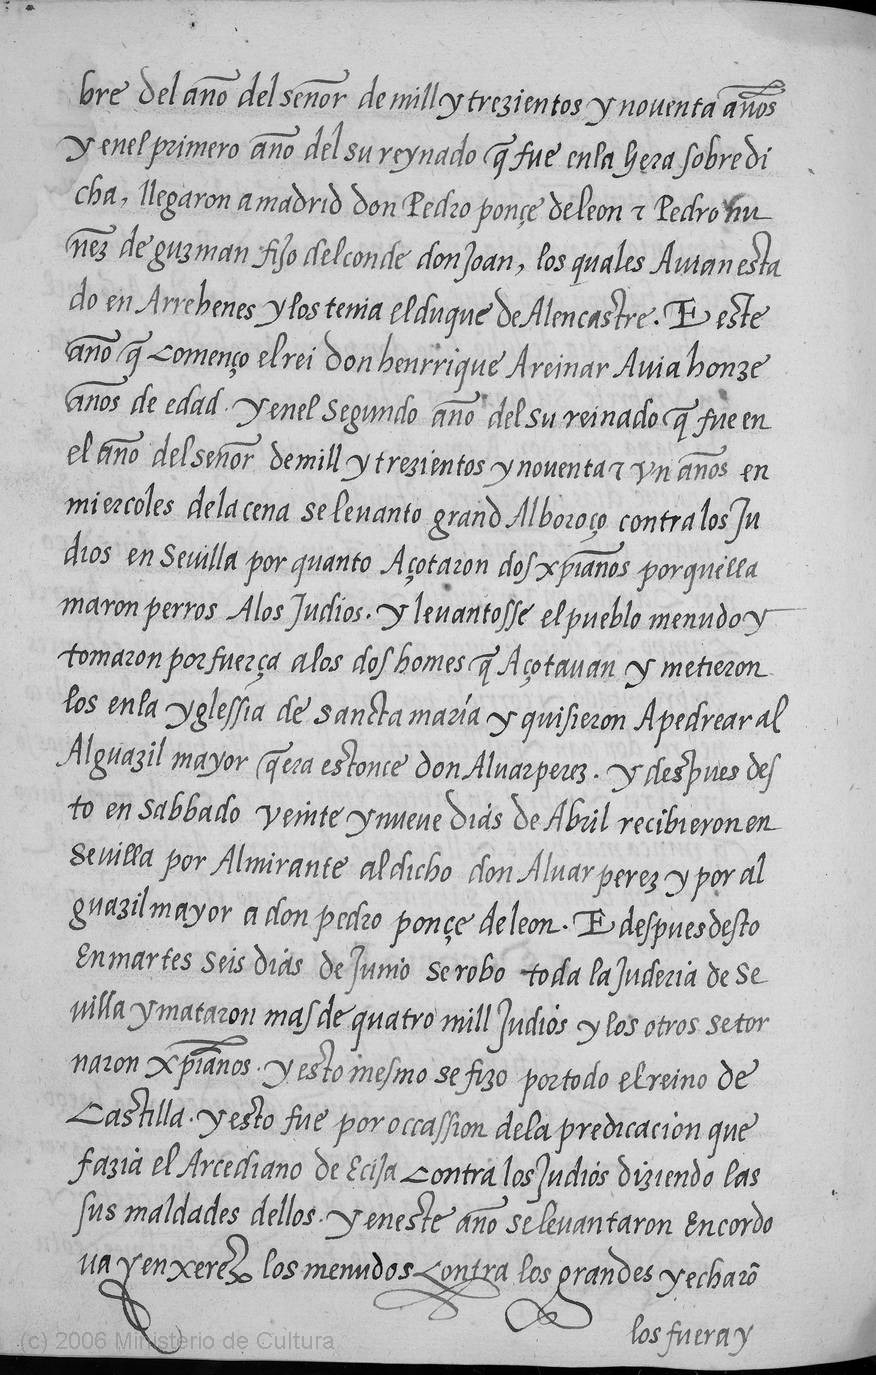 bre del año del señor de mill y trezientos y nouenta años
y en el primero año del su reynado q̃ fue en la hera sobre di
cha, llegaron a madrid don Pedro ponçe de leon ⁊ Pedro nu
ñez de guzman fijo del conde don Joan, los quales Auian esta
do en Arrehenes y los tenia el duque de Alencastre. E este
año q̃ Començo el rei don henrrique A reinar Auia honze
años de edad. y en el Segundo año del su reinado q̃ fue en
el año del señor de mill y trezientos y nouenta ⁊ vn años en
miercoles de la cena se leuanto grand Alboroço contra los Ju
dios en Seuilla por quanto Açotaron dos xp̃ianos porque lla
maron perros A los Judios. y leuantosse el pueblo menudo y
tomaron por fuerça a los dos homes q̃ Açotauan y metieron
los en la yglessia de sancta maría y quisieron Apedrear al
Alguazil mayor q̃ era estonce don Aluar perez. y despues des
to en sabbado veinte y nueue dias de Abril recibieron en
Seuilla por Almirante al dicho don Aluar perez y por al
guazil mayor a don pedro ponçe de leon. E despues desto
En martes seis dias de Junio se robo toda la Juderia de Se
uilla y mataron mas de quatro mill Judios y los otros se tor
naron xp̃ianos. y esto mesmo se fizo por todo el reino de
Castilla. y esto fue por occassion de la predicacion que
fazia el Arcediano de Ecija Contra los Judios diziendo las
sus maldades dellos. y en este año se leuantaron En cordo
ua y en xerez los menudos Contra los grandes y echarõ
los fuera y
(c) 2006 Ministerio de Cultura